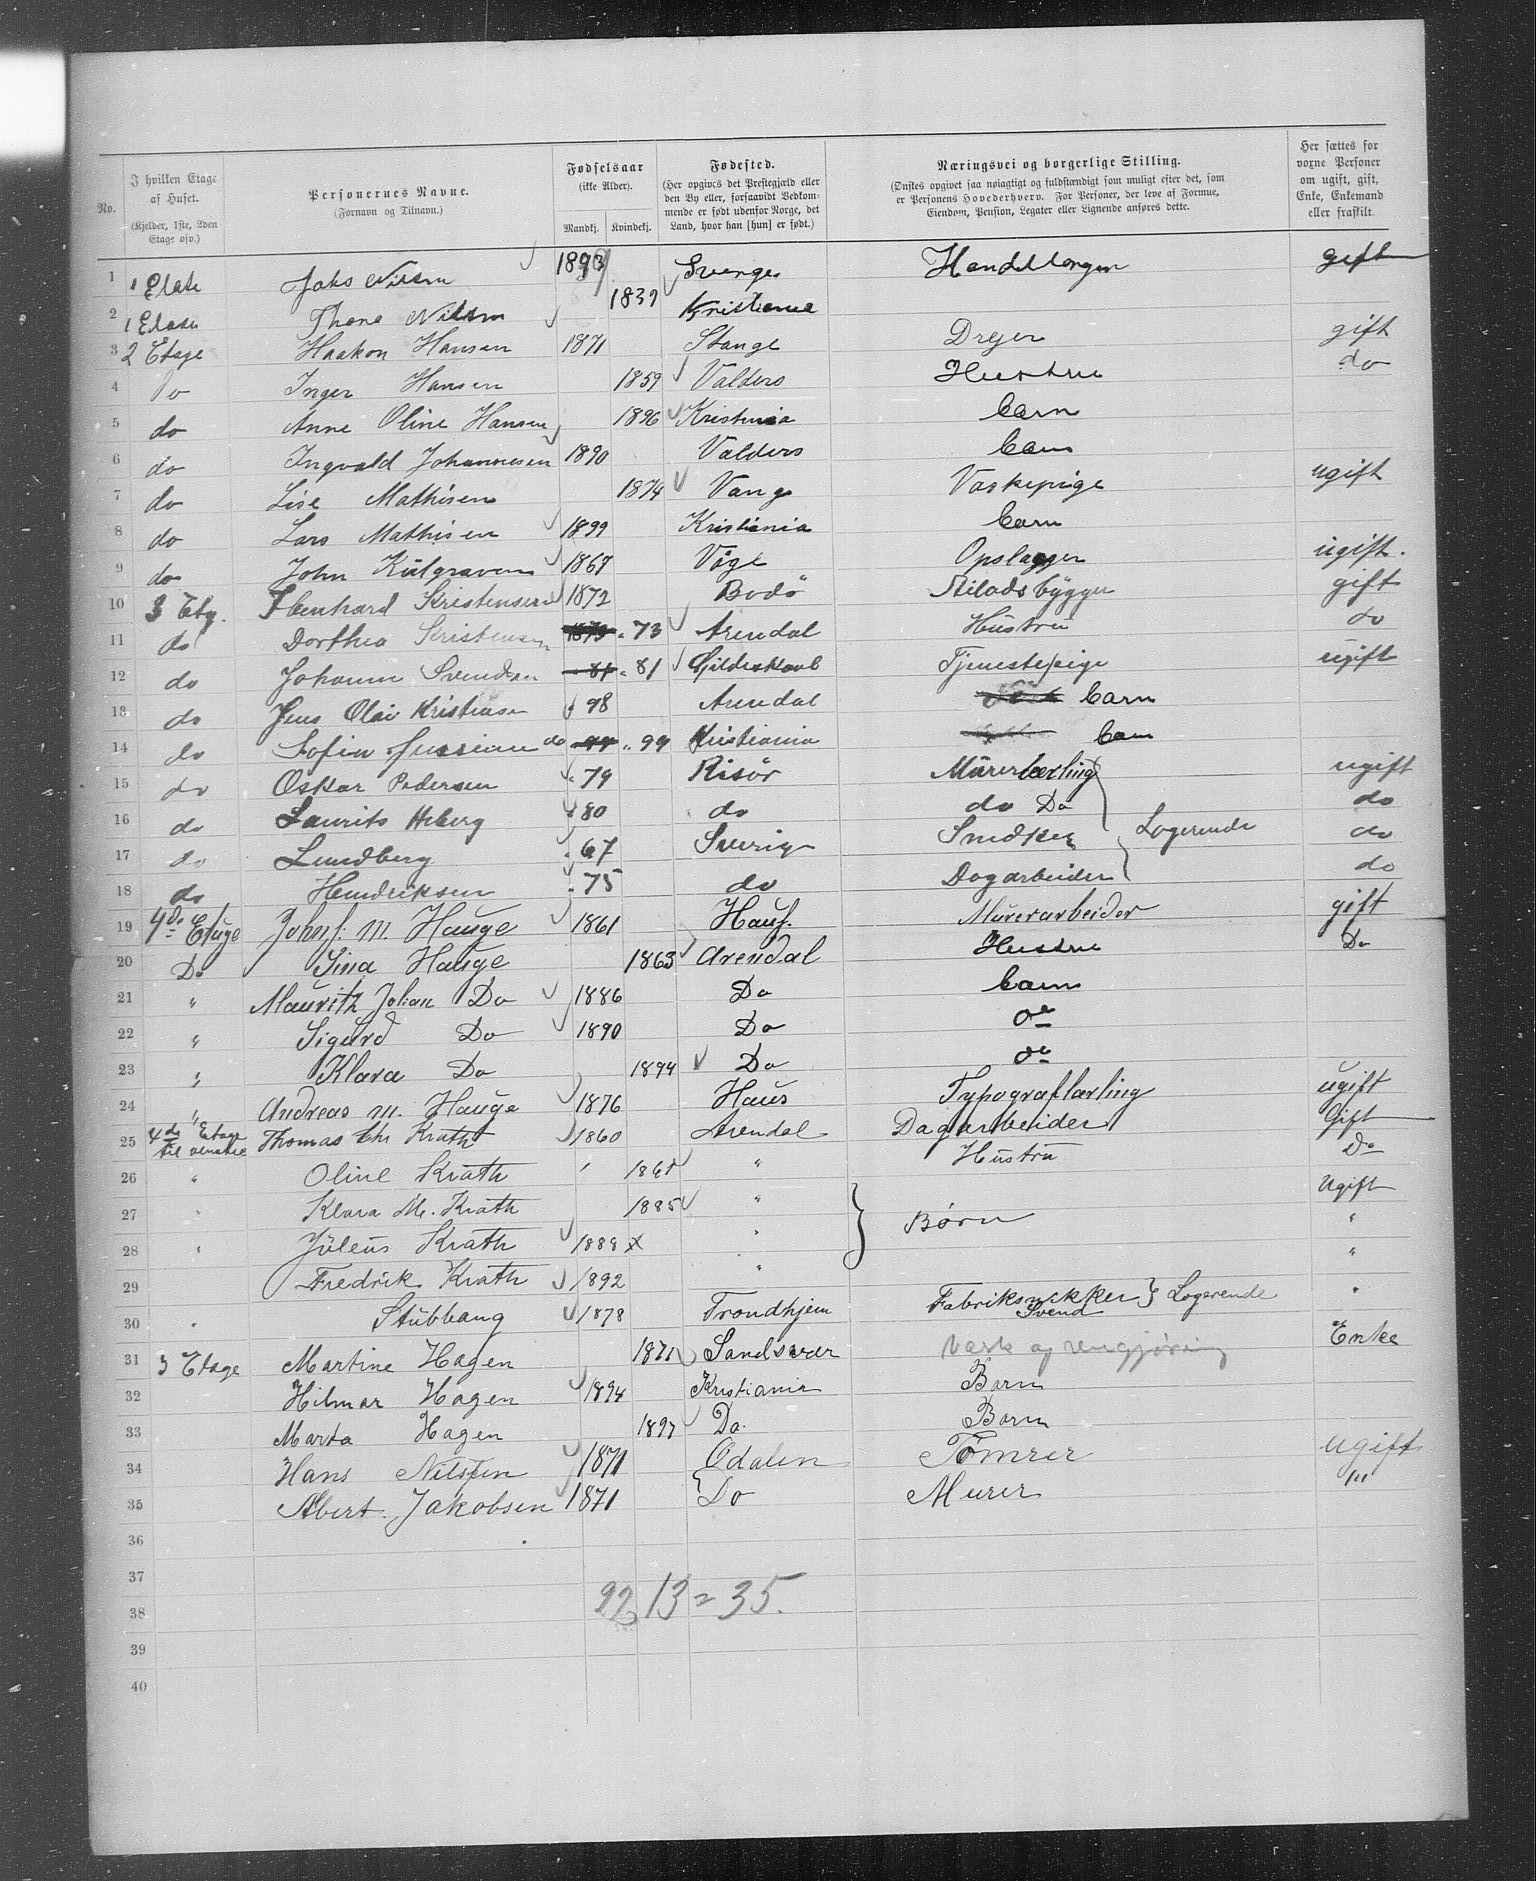 No. | I hvilken Etage af Huset. (Kjelder, 1ste, 2den Etage osv.) | Personernes Navne. (Fornavn og Tilnavn.) | Fødselsaar (ikke Alder). Mandkj. | Kvindekj. | Fødested. (Her opgives det Prestegjæld eller den By eller, forsaavidt Vedkommende er født udenfor Norge, det Land, hvor han [hun] er født.) | Næringsvei og borgerlige Stilling. (Ønskes opgivet saa nøiagtigt og fuldstændigt som muligt efter det, som er Personens Hovederhverv. For Personer, der leve af Formue, Eiendom, Pension, Legater eller Lignende anføres dette. | Her sættes for voxne Personer om ugift, gift, Enke, Enkemand eller fraskilt.
1 1 Etate Nilsen Sverge gift
2 Thora Nilsen 1839 Kristiania
3 2 Etage Haakon Hansen 1871 Stange Drejer gift
4 Do Inger Hansen 1859 Valders Hustru do
5 do Anne Oline Hansen 1896 Kristiania barn
6 do Ingvald Johannesen 1890 Valders barn
7 do Lise Mathisen 1874 Vang Vaskepige ugift
8 do Lars Mathisen 1899 Kristiania barn
9 do John 1867 Våge Opslagger ugift.
10 3 Etg. Kristensen 1872 Bodö Stilads bygger gift
11 do Dorthea Kristensen 1873 " 73 Arendal Hustru do
12 do Svendsen 81 " 81 Gildeskaal Tjenestepige ugift
13 do Jens Olai Kristensen " 98 Arendal barn
14 do Sofin do " 99 Kristiania barn
15 do Oskar Pedersen " 79 Risör Mürerlærling ugift
16 do Laurits " 80 do do Do Logerende do
17 do Lundberg " 67 Sverige Snedker do
18 do Hendriksen " 75 do Dagarbeider do
19 4de Etage Johsf. M. Hauge 1861 Hauf. Mürerarbeider gift
20 Do Sina Hauge 1863 Arendal Hustru Do
21 " Mauritz Johan Do 1886 Do barn
22 " Sigurd Do 1890 Do do
23 " Klara Do 1894 Do do
24 " Andreas M. Hauge 1876 Haus Typograflærling ugift
25 4de Etage til venstre Thomas Chr Krath 1860 Arendal Dagarbeider Gift
26 " Oline Krath 1861 " Hüstru Do
27 " Klara M. Krath 1885 " Børn Ugift
28 " Jüleus Krath 1888 " "
29 Fredrik Krath 1892 " "
30 " Stübbaug 1878 Trondhjem Fabriksnikker Svend } Logerende "
31 3 Etage Martine Hagen 1871 Sandsvær Vask og rengjøring Enke
32 Hilmar Hagen 1894 Kristiania Barn
33 Marta Hagen 1897 Do. Barn
34 Hans Nilsen 1871 Odalen Tömrer ugift
35 Albert. Jakobsen 1871 Do Murer "
36
37
38 22 13 = 35.
39
40